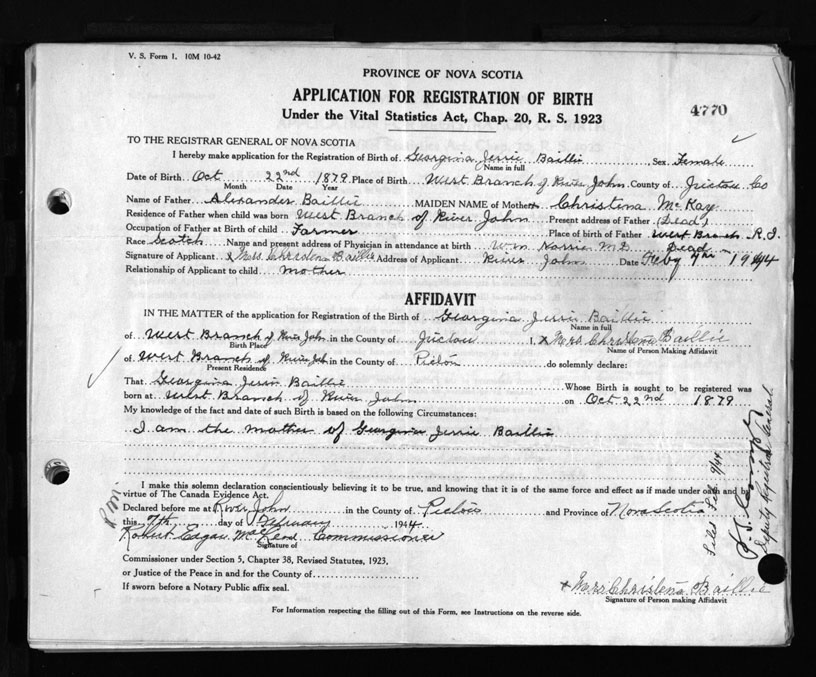 V. S. Form 1. 10M 10-42
PROVINCE OF NOVA SCOTIA
APPLICATION FOR REGISTRATION OF BIRTH
4770
Under the Vital Statistics Act, Chap. 20, R. S. 1923
TO THE REGISTRAR GENERAL OF NOVA SCOTIA
I hereby make application for the Registration of Birth of Georgina Jessie Baillie Sex Female
Name in full
Date of Birth Oct 22nd 1879 Place of Birth West Branch of River John County of Pictou Co
Month Date Year
Name of Father Alexander Baillie MAIDEN NAME of Mother Christena McKay
Residence of Father when child was born West Branch of River John Present address of Father (Dead)
Occupation of Father at Birth of child Farmer Place of birth of Father West Branch R. J.
Race Scotch Name and present address of Physician in attendance at birth Wm Norrie M D Dead
Signature of Applicant x Mrs. Christena Baillie Address of Applicant River John Date Feby 7th 1944
Relationship of Applicant to child mother
AFFIDAVIT
IN THE MATTER of the application for Registration of the Birth of Georgina Jessie Baillie
Name in full
of West Branch of River John in the County of Pictou I, x Mrs Christena Baillie
Birth Place Name of Person Making Affidavit
of West Branch of River John in the County of Pictou do solemnly declare:
Present Residence
That Georgina Jessie Baillie Whose Birth is sought to be registered was
born at West Branch of River John on Oct 22nd 1879
My knowledge of the fact and date of such Birth is based on the following Circumstances:
I am the mother of Georgina Jessie Baillie
I make this solemn declaration conscientiously believing it to be true, and knowing that it is of the same force and effect as if made under oath and by
virtue of The Canada Evidence Act.
Declared before me at River John in the County of Pictou and Province of Nova Scotia
this 7th day of February 1944
Robert Edgar McLeod Commissioner
Signature of
Commissioner under Section 5, Chapter 38, Revised Statutes, 1923,
or Justice of the Peace in and for the County of
If sworn before a Notary Public affix seal.
x Mrs Christena Baillie
Signature of Person making Affidavit
For Information respecting the filling out of this Form, see Instructions on the reverse side.
Filed Feb 9/44
Deputy Registrar General